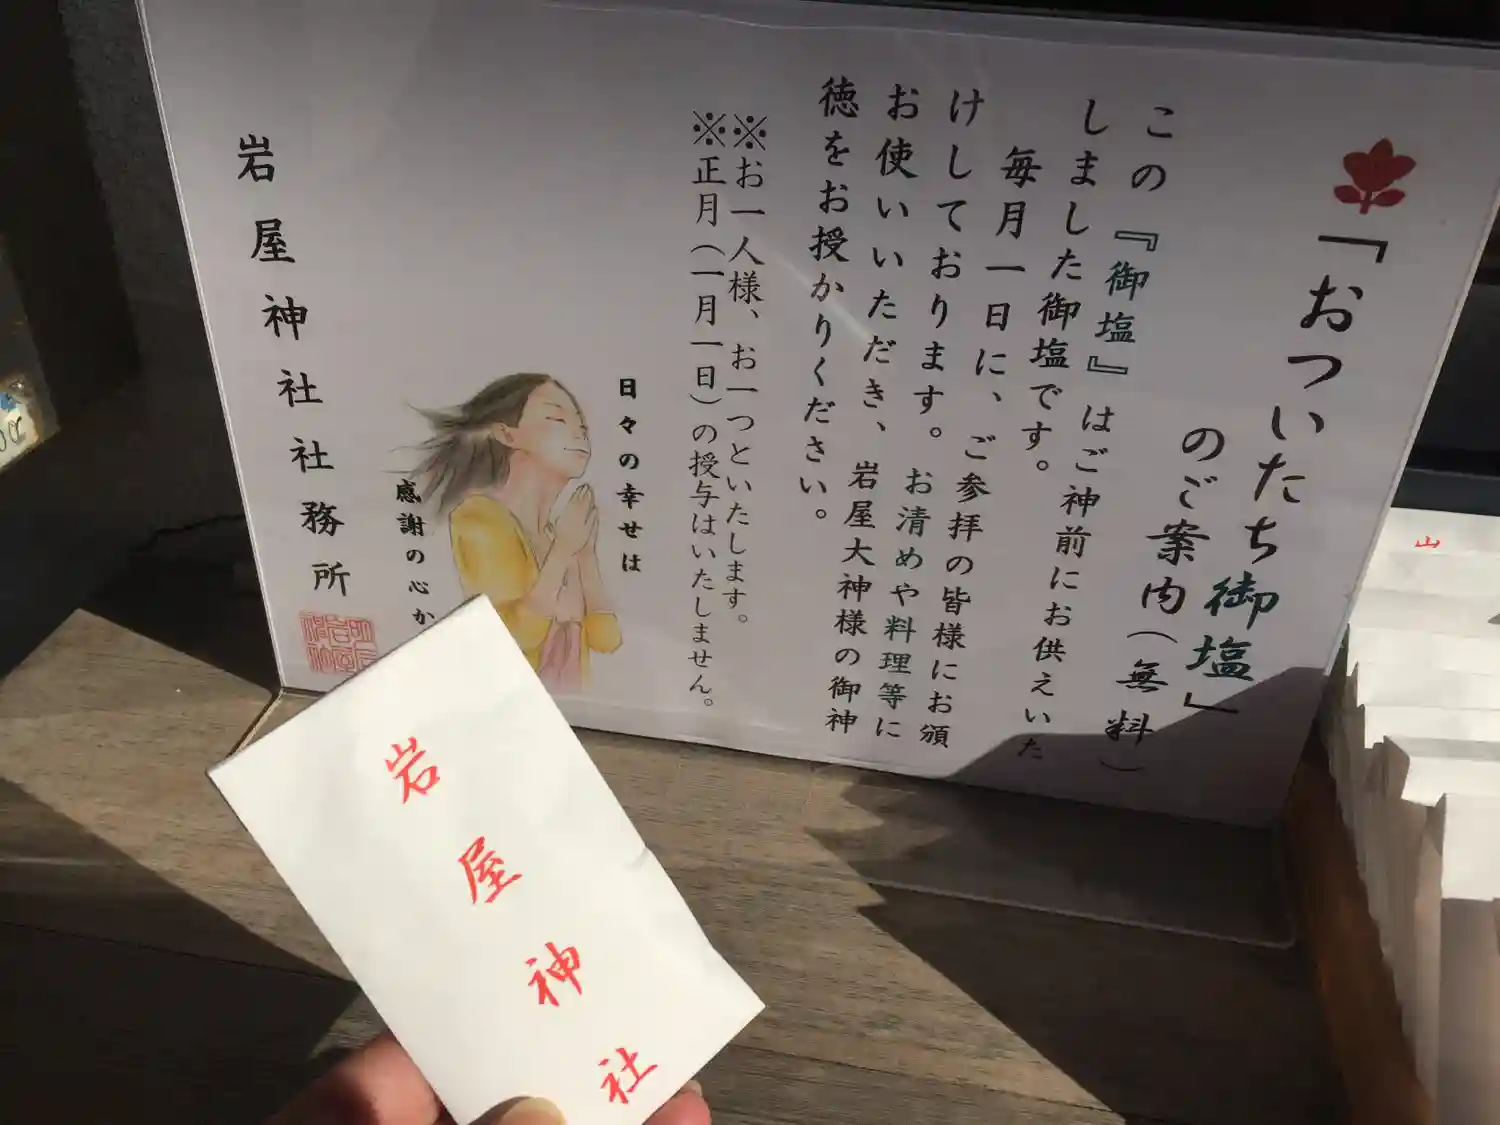 「おついたち御塩」
のご案内(無料)
この『御塩』はご神前にお供えいた
しました御塩です。
毎月一日に、ご参拝の皆様にお頒
けしております。お清めや料理等に
お使いいただき、岩屋大神様の御神
徳をお授かりください。
※お一人様、お一つといたします。
※正月(一月一日)の授与はいたしません。
日々の幸せは
感謝の心か
岩屋神社社務所
岩屋神社
山